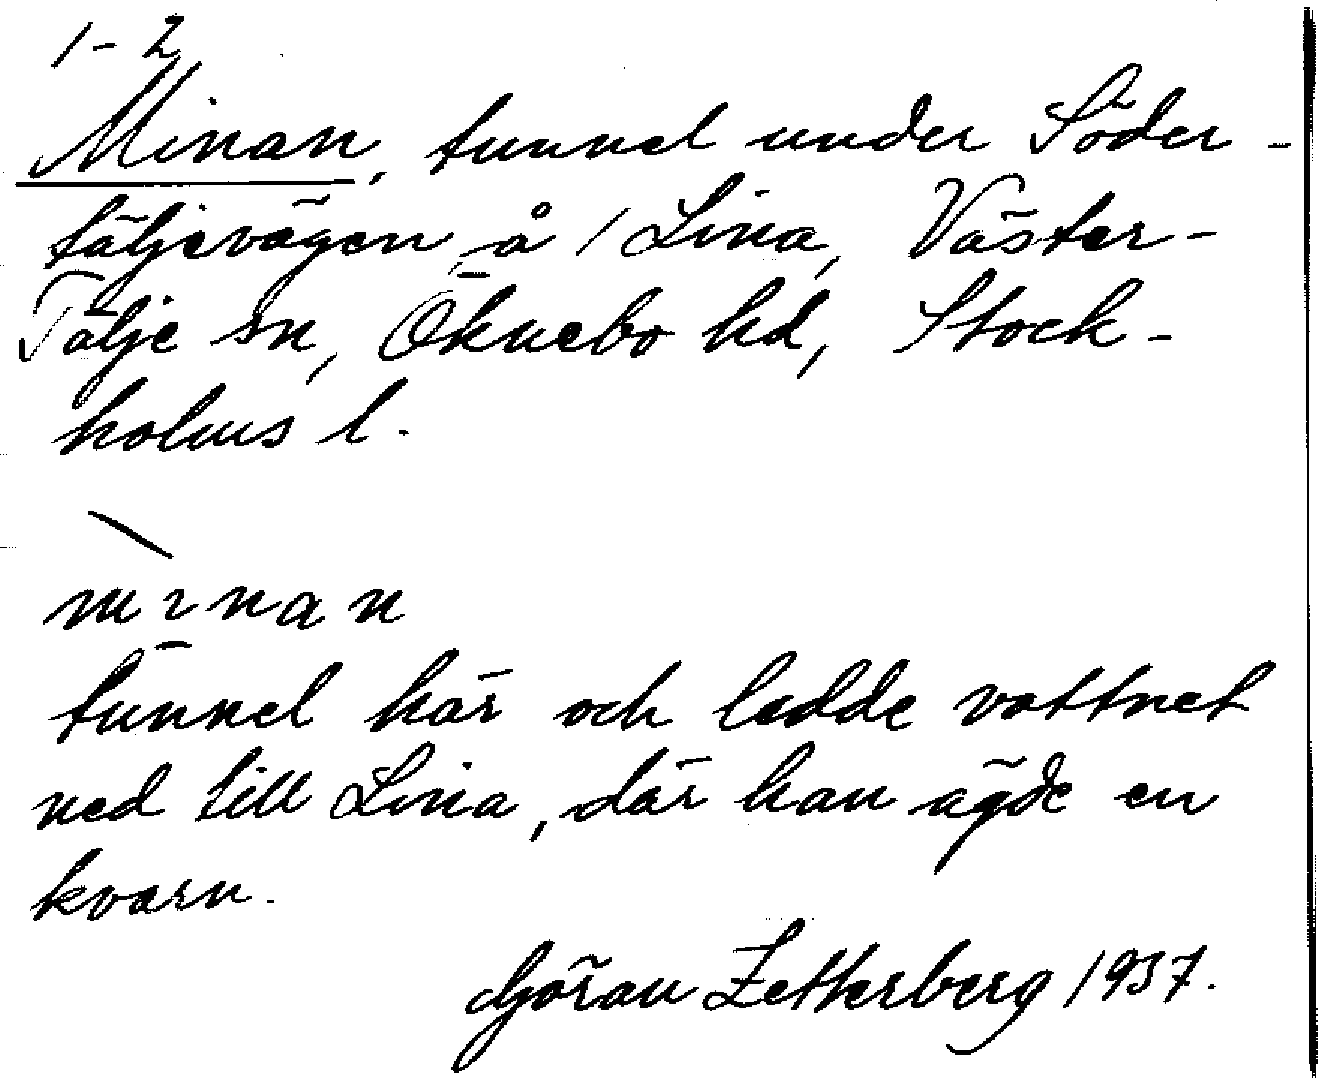 1-2
Minan, tunnel under Söder-
täljevägen, å 1 Lina, Väster-
Tälje sn, Öknebo hd, Stock-
holms l.
\
mınan
tunnel här och ledde vattnet
ned till Lina, där han ägde en
kvarn.
Göran Zetterberg 1937.